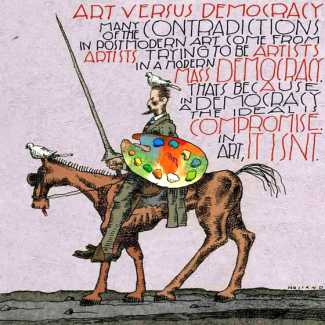 ART VERSUS DEMOCRACY
MANY OF THE CONTRADICTIONS
IN POSTMODERN ART COME FROM
ARTISTS TRYING TO BE ARTISTS
IN A MODERN
MASS DEMOCRACY.
THATS BECAUSE
IN A DEMOCRACY
THE IDEAL IS
COMPROMISE.
IN ART, IT ISNT.
HOLLAND